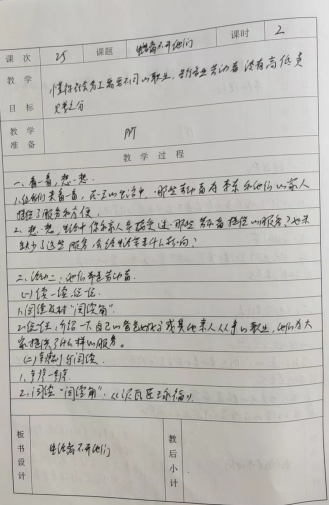 课次 25 课题 生活离不开他们 课时 2
教学 懂得社会分工需要不同的职业,各行各业劳动者没有高低贵
目标 贱之分
教学
准备 PPT
教学过程
一、看一看,想一想
1.让我们来看一看,在一天的生活中,哪些劳动者在李东和他的家人
提供了服务和方便。
2.想一想,生活中你和家人还接受过哪些劳动者提供的服务?如果
缺少了这些服务,会给生活带来什么影响?
二、活动二:他们都是劳动者
(一)读一读,记一记
1.阅读教材“阅读角”
2.记一记,介绍一下,自己的爸爸妈妈或其他亲人从事的职业,他们为大
家提供了什么样的服务。
(二)与阅读
2.阅读“阅读角”:《泥瓦匠
板书设计 生活离不开他们 教后小计